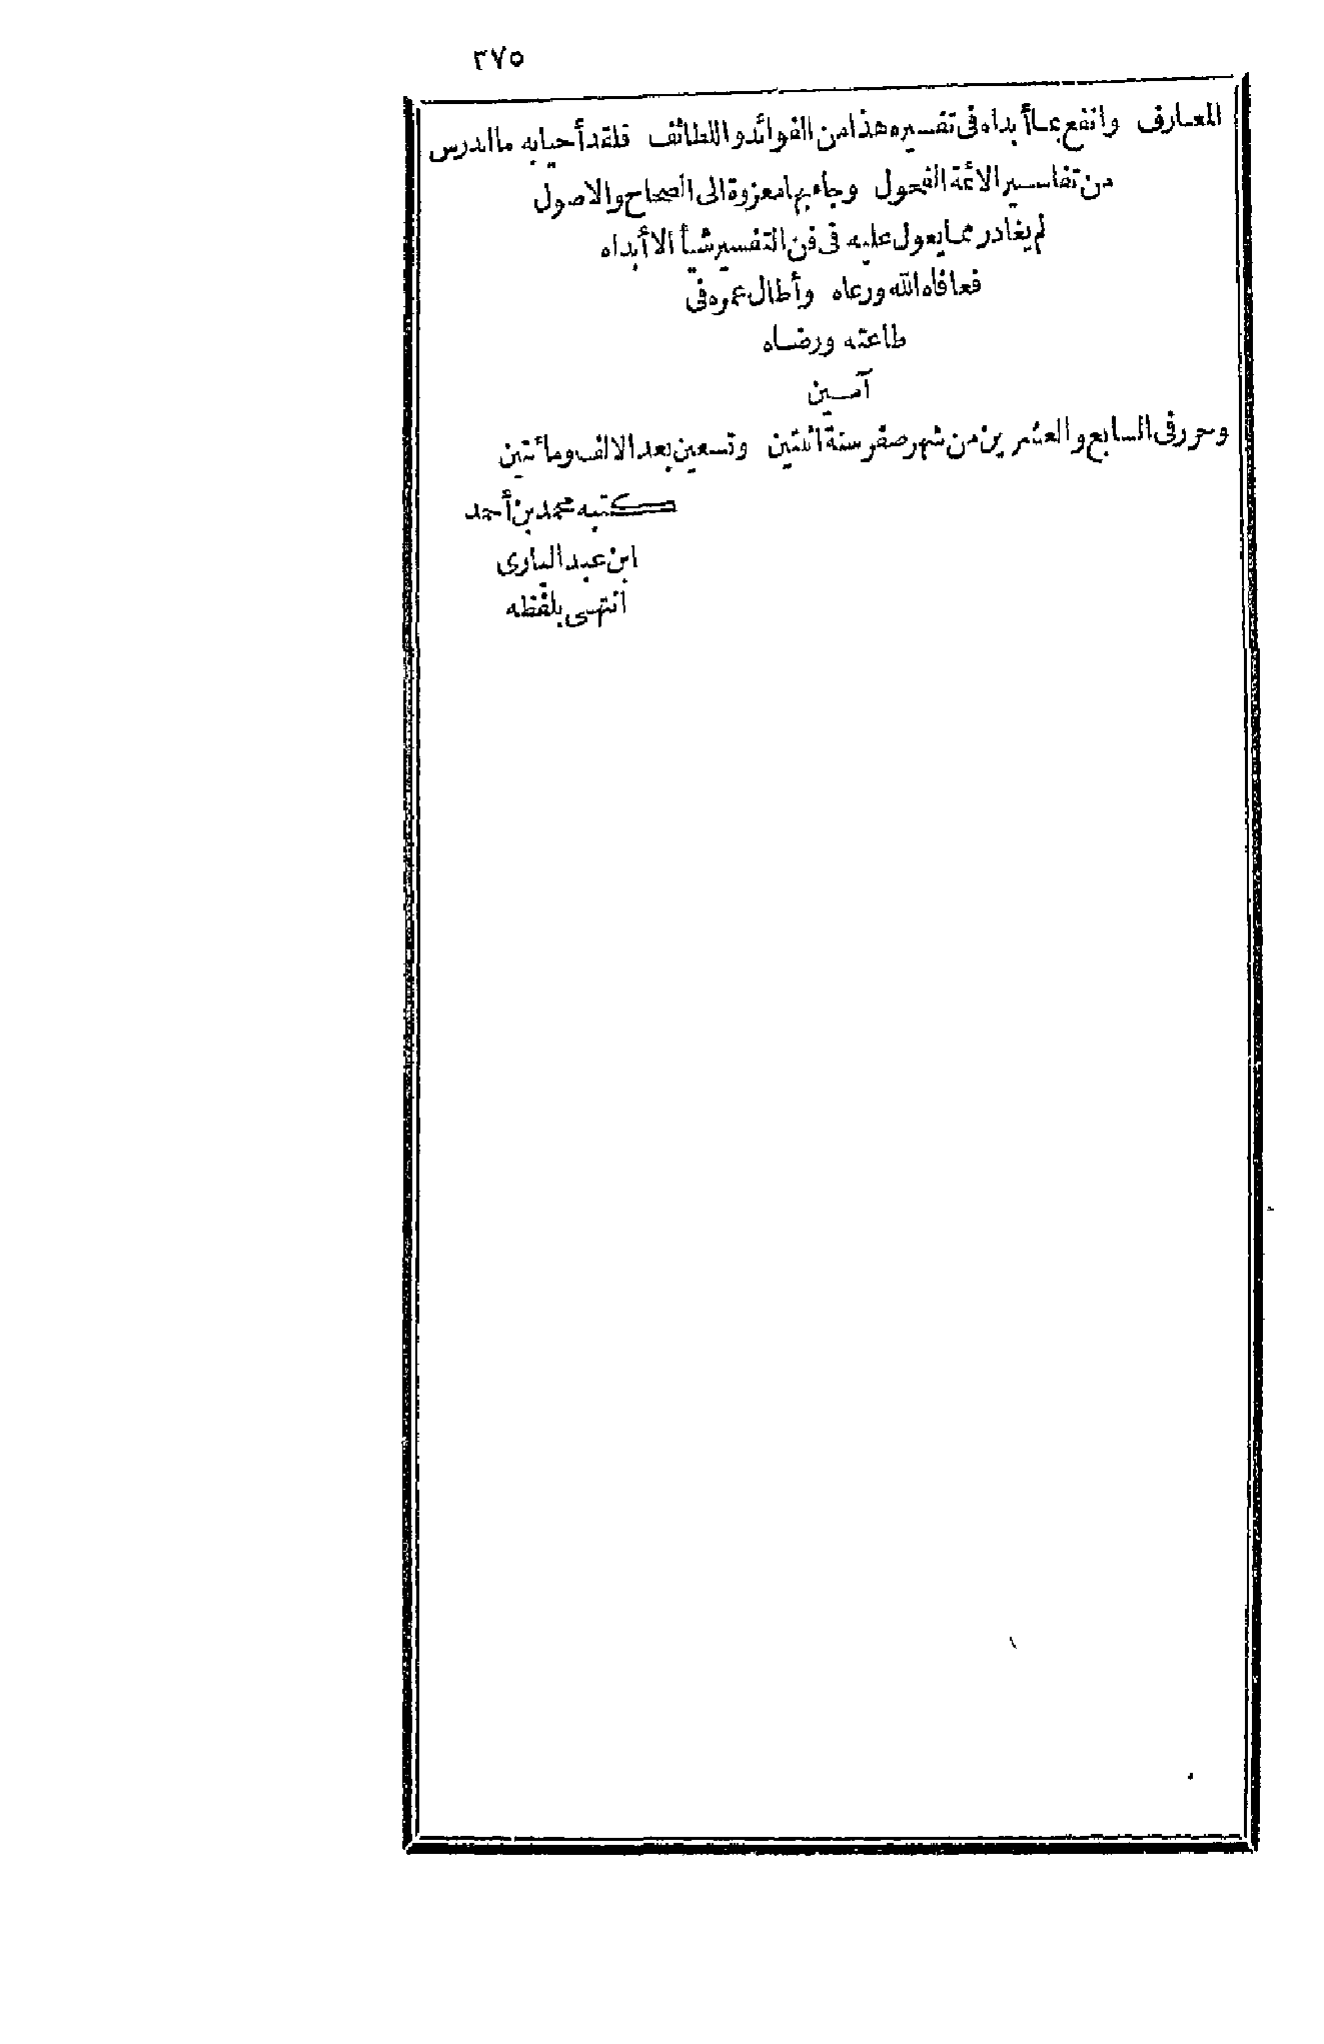 ٣٧٥
المعارف وانفع بما أبداه فى تفسيره هذا من الفوائد واللطائف فلقد أحيا به ما اندرس
من تفاسير الائمة الفحول وجاء بها معزوة الى الصحاح والاصول
لم يغادر مما يعول عليه فى فن التفسير شيأ الا أبداه
فعافاه الله ورعاه وأطال عمره فى
طاعته ورضاه
آمين
وحرر فى السابع والعشرين من شهر صفر سنة اثنتين وتسعين بعد الالف ومائتين
كتبه محمد بن أحمد
ابن عبد البارى
انتهى بلفظه